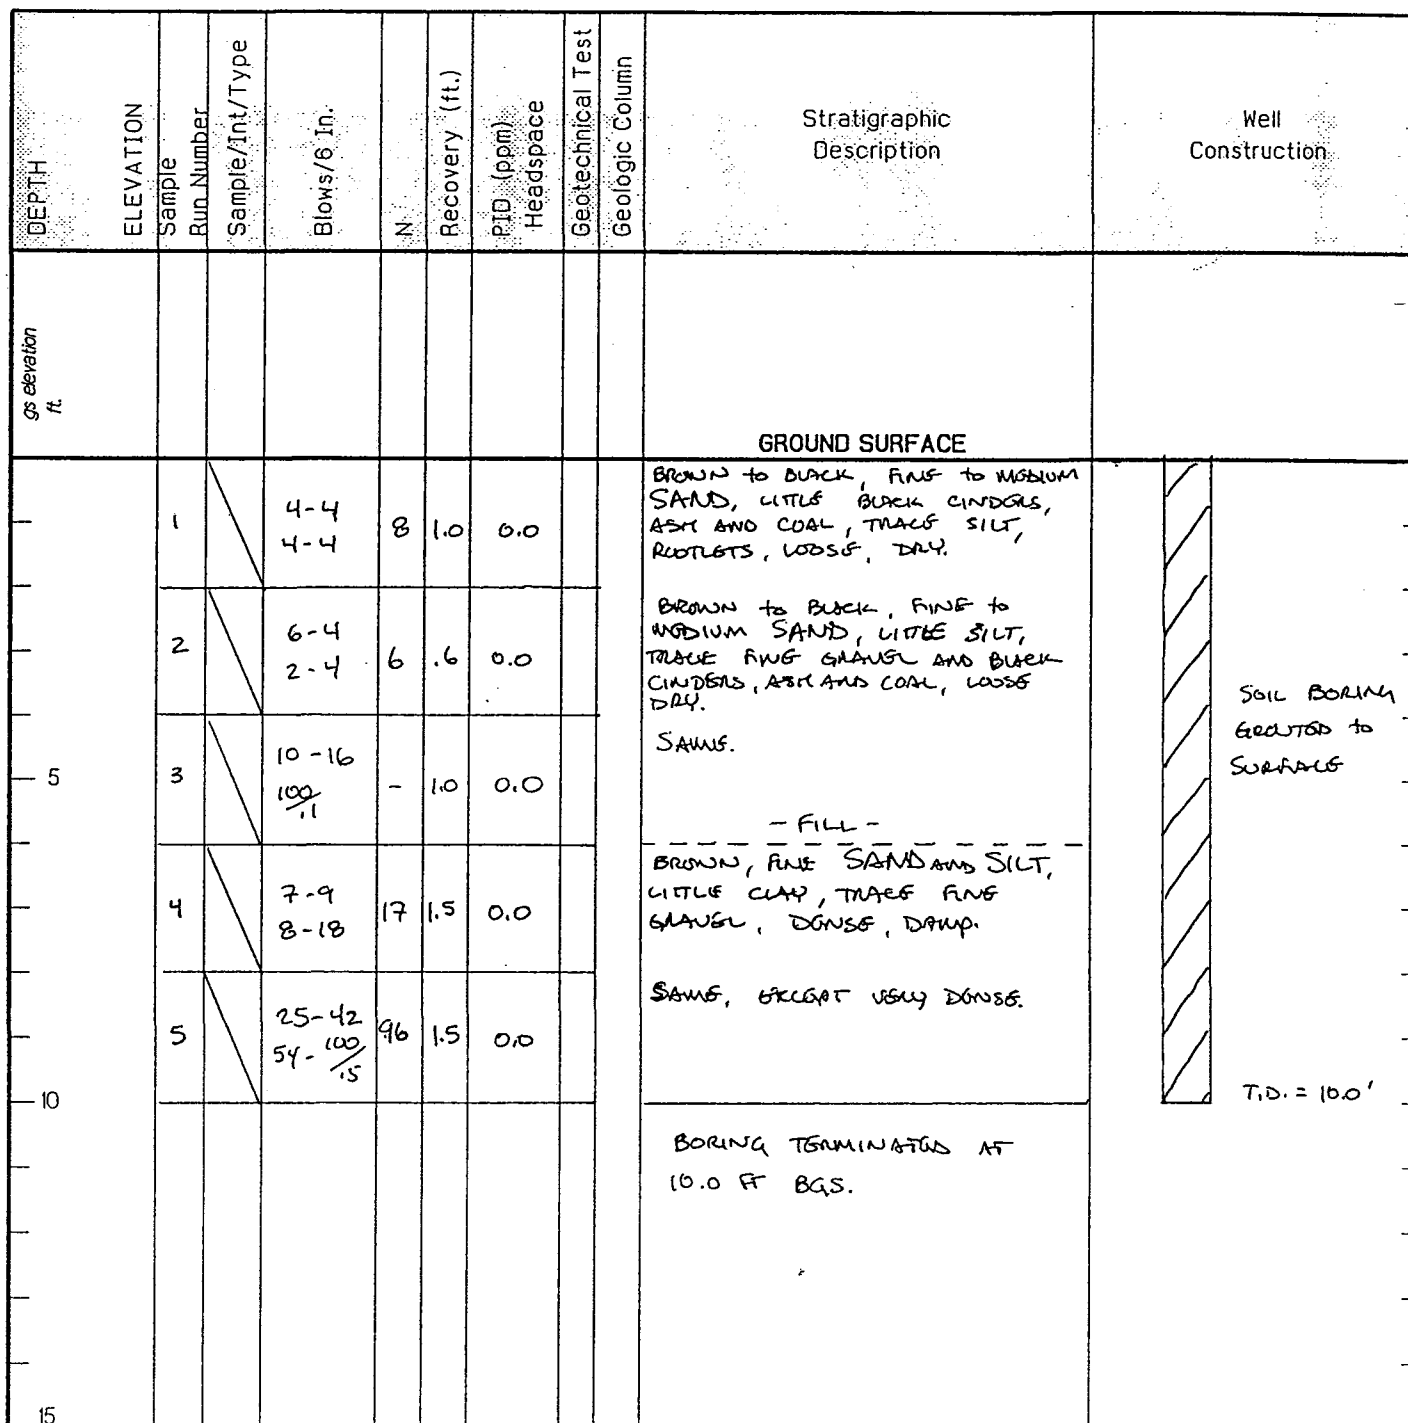 DEPTH
ELEVATION
Sample
Run Number
Sample/Int/Type
Blows/6 In.
N
Recovery (ft.)
PID (ppm)
Headspace
Geotechnical Test
Geologic Column
Stratigraphic
Description
Well
Construction
gs elevation
ft.
GROUND SURFACE
1
4-4
4-4
8
1.0
0.0
BROWN to BLACK, FINE to MEDIUM
SAND, LITTLE BLACK CINDERS,
ASH AND COAL, TRACE SILT,
ROOTLETS, LOOSE, DRY.
2
6-4
2-4
6
.6
0.0
BROWN to BLACK, FINE to
MEDIUM SAND, LITTLE SILT,
TRACE FINE GRAVEL AND BLACK
CINDERS, ASH AND COAL, LOOSE
DRY.
SOIL BORING
GROUTED to
SURFACE
5
3
10-16
100/.1
-
1.0
0.0
SAME.
- FILL -
4
7-9
8-18
17
1.5
0.0
BROWN, FINE SAND AND SILT,
LITTLE CLAY, TRACE FINE
GRAVEL, DENSE, DAMP.
5
25-42
54-100/.5
96
1.5
0.0
SAME, EXCEPT VERY DENSE.
10
T.D. = 10.0'
BORING TERMINATED AT
10.0 FT BGS.
15